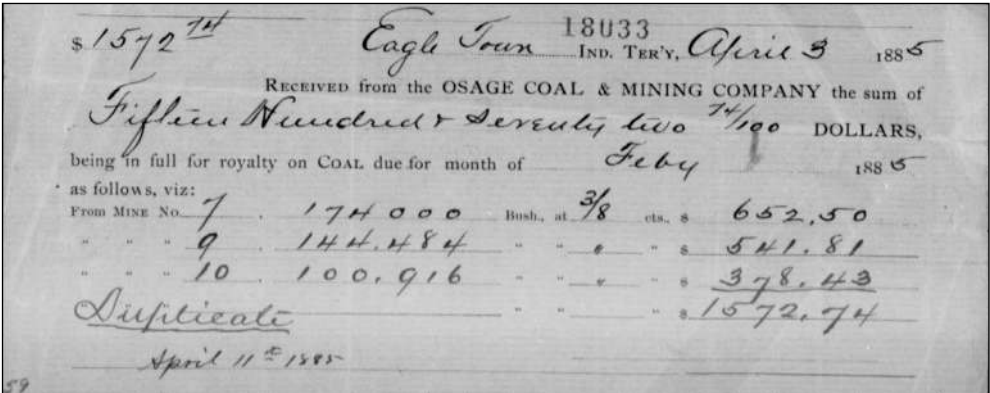 18033
$ 1572 74 Eagle Town IND. TER'Y, April 3 1885
RECEIVED from the OSAGE COAL & MINING COMPANY the sum of
Fifteen Hundred & Seventy two 74/100 DOLLARS,
being in full for royalty on COAL due for month of Feby 1885
as follows, viz:
From MINE No. 7 174000 Bush., at 3/8 cts., $ 652.50
" " " 9 144.484 " " " " $ 541.81
" " " 10 100.916 " " " " $ 378.43
Duplicate " " " $ 1572.74
April 11th 1885
59